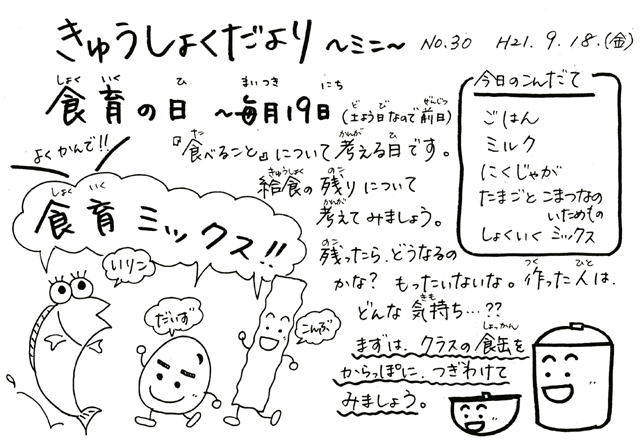 きゅうしょくだより ～ミニ～ No.30 H21.9.18.(金)
食育の日 ～毎月19日(土よう日なので前日)
しょく いく ひ まい つき にち ど び ぜんじつ
『食べること』について考える日です。
た かんが ひ
給食の残りについて
きゅうしょく のこ
考えてみましょう。
かんが
残ったら、どうなるの
のこ
かな? もったいないな。作った人は、
つく ひと
どんな気持ち…??
きも
まずは、クラスの食缶を
しょっかん
からっぽに、つぎわけて
みましょう。
今日のこんだて
ごはん
ミルク
にくじゃが
たまごとこまつなの
いためもの
しょくいくミックス
よくかんで!!
食育ミックス!!
しょく いく
いりこ
だいず
こんぶ